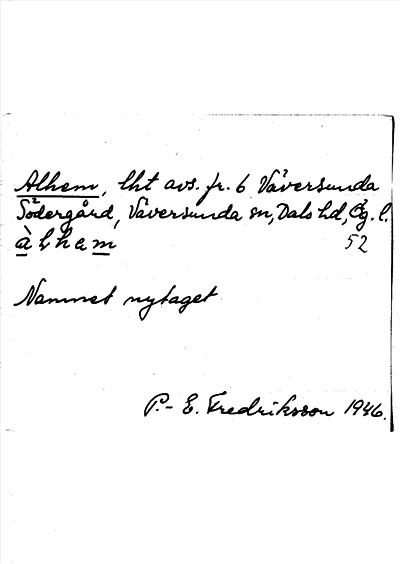 Alhem, lht avs. fr. 6² Väversunda
Södergård, Väversunda sn, Dals hd, Ög. l.
àlhem 52
Namnet nytaget
P.-E. Fredriksson 1946.